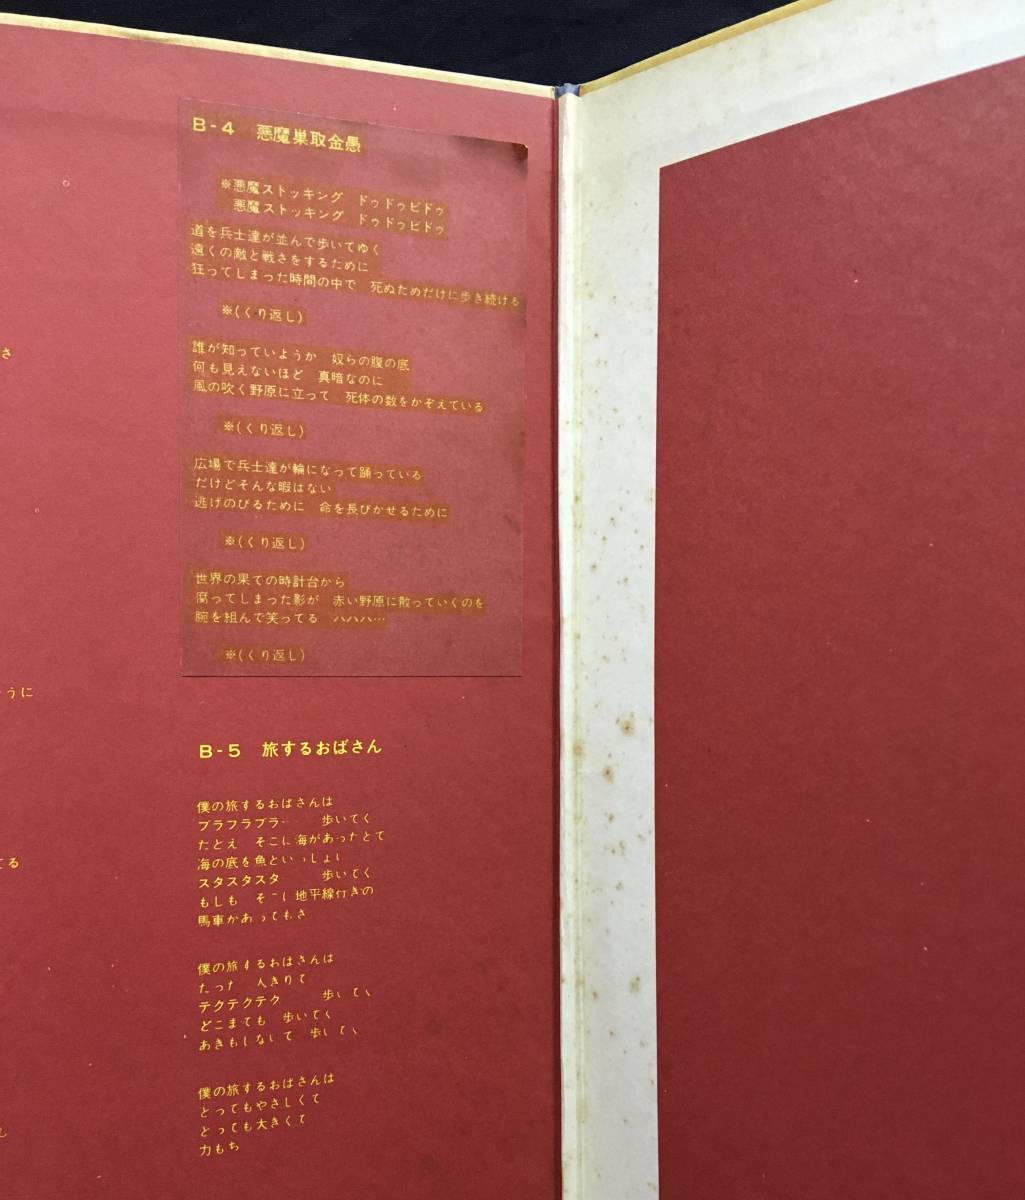 B-4 悪魔巣取金愚
※悪魔ストッキング ドゥドゥビドゥ
悪魔ストッキング ドゥドゥビドゥ
道を兵士達が並んで歩いてゆく
遠くの敵と戦さをするために
狂ってしまった時間の中で 死ぬためだけに歩き続ける
※(くり返し)
誰が知っていようか 奴らの腹の底
何も見えないほど 真暗なのに
風の吹く野原に立って 死体の数をかぞえている
※(くり返し)
広場で兵士達が輪になって踊っている
だけどそんな暇はない
逃げのびるために 命を長びかせるために
※(くり返し)
世界の果ての時計台から
腐ってしまった影が 赤い野原に散っていくのを
腕を組んで笑ってる ハハハ…
※(くり返し)
B-5 旅するおばさん
僕の旅するおばさんは
ブラブラブラ 歩いてく
たとえ そこに海があったとて
海の底を魚といっしょに
スタスタスタ 歩いてく
もしも そこに地平線行きの
馬車があってもさ
僕の旅するおばさんは
たった 人きりで
テクテクテク 歩いてく
どこまでも 歩いてく
あきもしないで 歩いてく
僕の旅するおばさんは
とってもやさしくて
とっても大きくて
力もち
さ
うに
てる